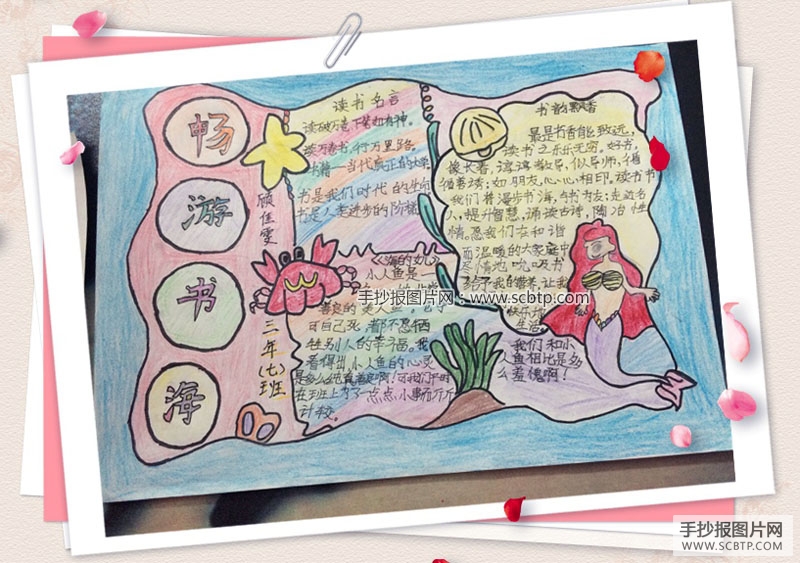 畅
游
书
海
顾佳雯
三年(七)班
读书名言
读破万卷,下笔如有神。
读万卷书,行万里路。
书籍——当代真正的大学。
书是我们时代的生命
书是人类进步的阶梯
《海的女儿》
小人鱼是一
善良的美人鱼
可自己死,都不愿牺
牲别人的幸福。我
看得出,小人鱼的心灵
是多么纯真善良啊!可我们平时
在班上为了一点点小事斤斤
计较。
书韵飘香
最是书香能致远,
读书之乐乐无穷。好书,
像长者,谆谆教导,似导师,循
循善诱;如朋友,心心相印。读书节
我们将漫步书海,与书为友;走近名
人,提升智慧,诵读古诗,陶冶性
情,愿我们在和谐
而温暖的大家庭中
尽情地吮吸书
给予我的营养,让我
快乐
生活
我们和小
人鱼相比是多
么羞愧啊!
手抄报图片网:www.scbtp.com
手抄报图片网
WWW.SCBTP.COM